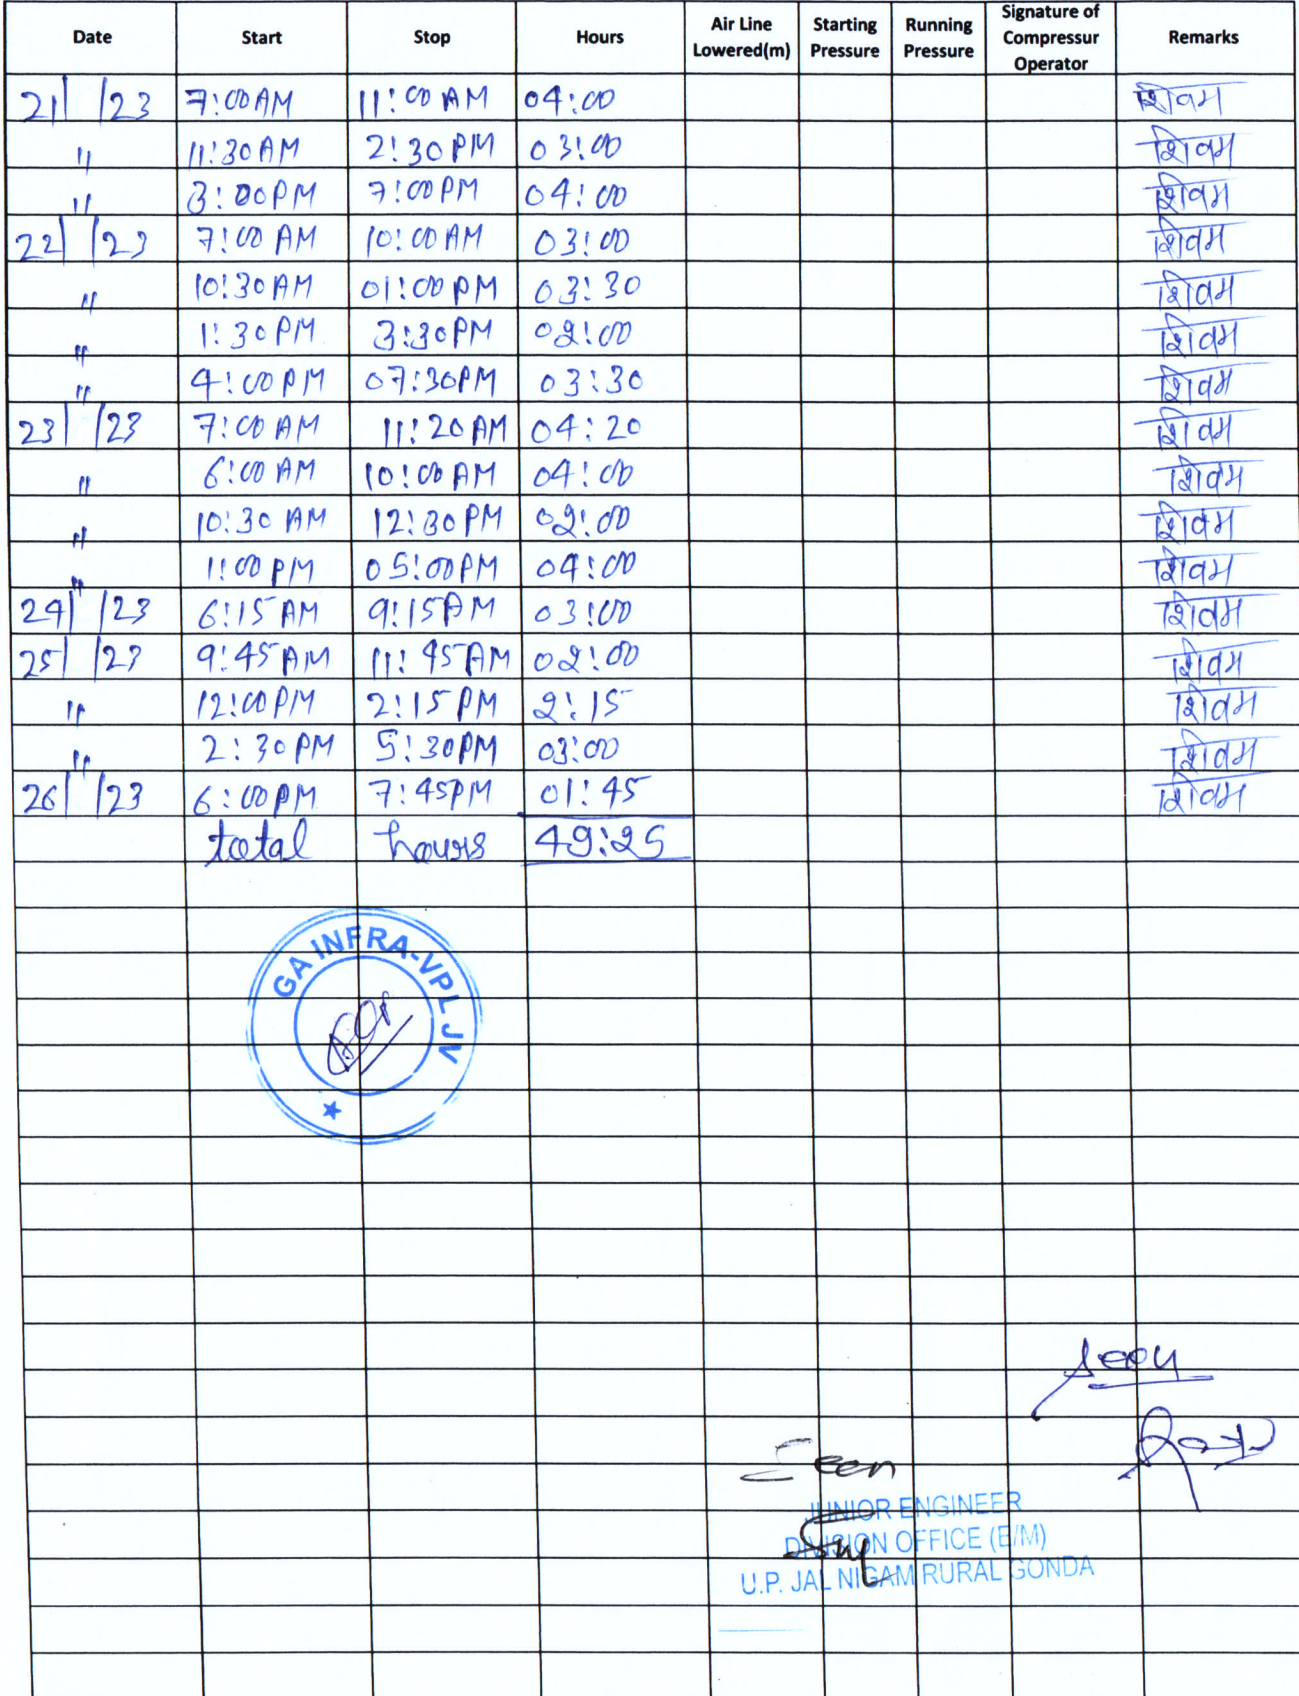 Date Start Stop Hours Air Line Lowered(m) Starting Pressure Running Pressure Signature of Compressur Operator Remarks
21/ /23 7:00AM 11:00AM 04:00 शिवम
" 11:30AM 2:30PM 03:00 शिवम
" 3:00PM 7:00PM 04:00 शिवम
22/ /23 7:00 AM 10:00AM 03:00 शिवम
" 10:30AM 01:00PM 03:30 शिवम
" 1:30PM 3:30PM 02:00 शिवम
" 4:00PM 07:30PM 03:30 शिवम
23/ /23 7:00AM 11:20AM 04:20 शिवम
" 6:00AM 10:00AM 04:00 शिवम
" 10:30 AM 12:30PM 02:00 शिवम
" 1:00PM 05:00PM 04:00 शिवम
24/ /23 6:15AM 9:15AM 03:00 शिवम
25/ /23 9:45AM 11:45AM 02:00 शिवम
" 12:00PM 2:15PM 2:15 शिवम
" 2:30PM 5:30PM 03:00 शिवम
26/ /23 6:00PM 7:45PM 01:45 शिवम
total hours 49:25
GA INFRA-VPL JV
Seen
JUNIOR ENGINEER
DIVISION OFFICE (E/M)
U.P. JAL NIGAM RURAL GONDA